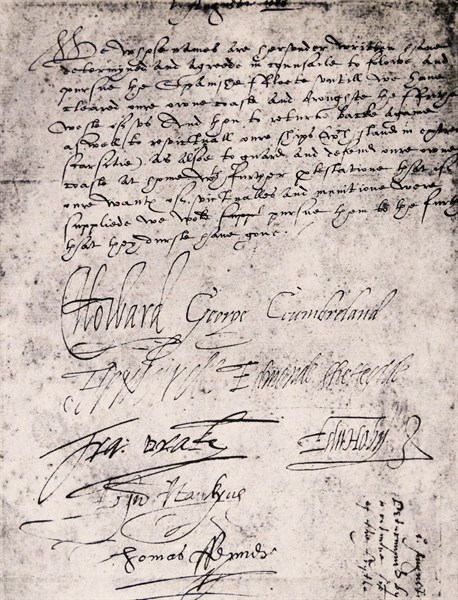 August 1588
We whose names are hereunder written have
determined and agreede in counsaile to folowe and
pursue the Spanishe Fleete untill we have
cleared oure owne coaste and broughte the Frithe
weste of us, and then to returne backe againe
as well to revictuall oure ships which stand in extreme
scarsitie, as alsoe to guard and defend oure owne
coaste at home, with further protestatione that if
oure wants of victualles and munitione were
suppliede we wold pursue them to the furthest
that they durste have gone.
C Howard George Cumbreland
T Howard Edmonde Sheffeylde
Fra: Drake Edw Hoby
John Hawkyns
Thomas Fenner
1 August
Determined by
councill